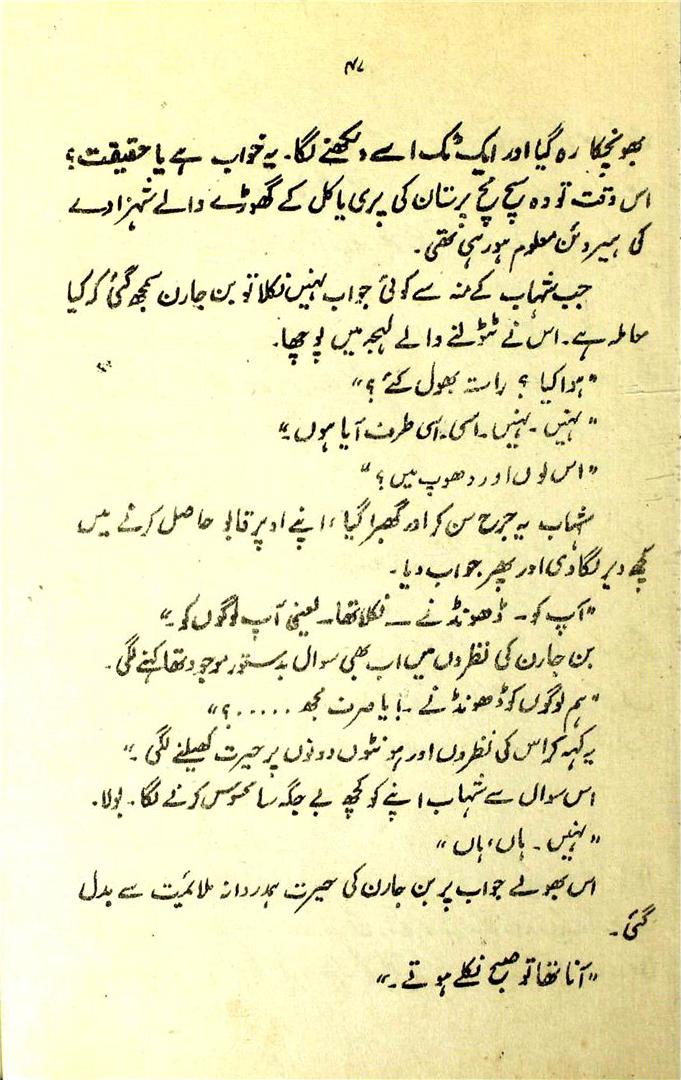 ۴۷
بھونچکا رہ گیا اور ایک ٹک اسے دیکھنے لگا۔ یہ خواب ہے یا حقیقت؟
اس وقت تو وہ سچ مچ پرستان کی پری یا کل کے گھوڑے والے شہزادے
کی ہیروئن معلوم ہو رہی تھی۔
جب شہاب کے منہ سے کوئی جواب نہیں نکلا تو بن جارن سمجھ گئی کہ کیا
معاملہ ہے۔ اس نے ٹٹولنے والے لہجہ میں پوچھا۔
"ہوا کیا؟ راستہ بھول گئے؟"
"نہیں۔ نہیں۔ اسی۔ اسی طرف آیا ہوں۔"
"اس لوں اور دھوپ میں؟"
شہاب یہ جرح سن کر اور گھبرا گیا، اپنے اوپر قابو حاصل کرنے میں
کچھ دیر لگا دی اور پھر جواب دیا۔
"آپ کو۔ ڈھونڈنے ۔ نکلا تھا۔ یعنی آپ لوگوں کو۔"
بن جارن کی نظروں میں اب بھی سوال بدستور موجود تھا کہنے لگی۔
"ہم لوگوں کو ڈھونڈنے ۔! یا صرف مجھ .....؟"
یہ کہہ کر اس کی نظروں اور ہونٹوں دونوں پر حیرت کھیلنے لگی۔"
اس سوال سے شہاب اپنے کو کچھ بے جگہ سا محسوس کرنے لگا۔ بولا۔
"نہیں۔ ہاں، ہاں"
اس بھولے جواب پر بن جارن کی حیرت ہمدردانہ ملائمیت سے بدل
گئی۔
"آنا تھا تو صبح نکلے ہوتے۔"